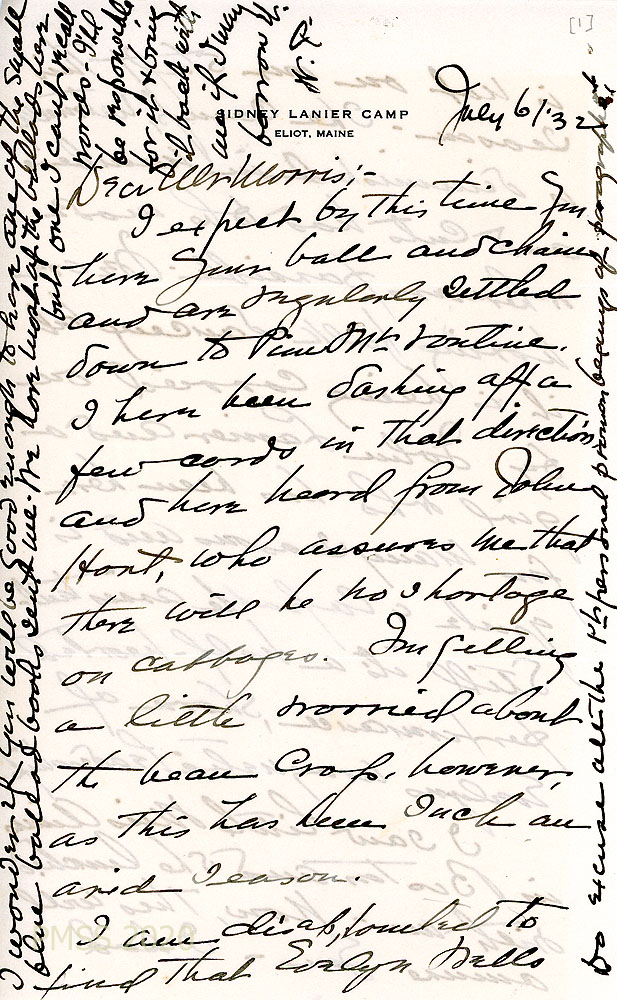 [1]
SIDNEY LANIER CAMP
ELIOT, MAINE
July 6/'32
Dear Mr Morris;-
I expect by this time you
have your ball and chain
and are regularly settled
down to Pine Mt. routine.
I have been dashing off a
few cards in that direction
and have heard from John
who assures me that
there will be no shortage
on cabbages. I'm getting
a little worried about
the bean crop, however,
as this has been such an
arid season.
I am disappointed to
find that Evelyn Wells
I wonder if you will be good enough to have one of the small
blue ballad books sent me. We have most of the ballads here
but one I can't recall
words - I'll
be responsible
for it & bring
it back with
me if I may
borrow it.
N. P.
Do excuse all the 1st personal pronoun beginnings of paragraphs.
PMSS 2020